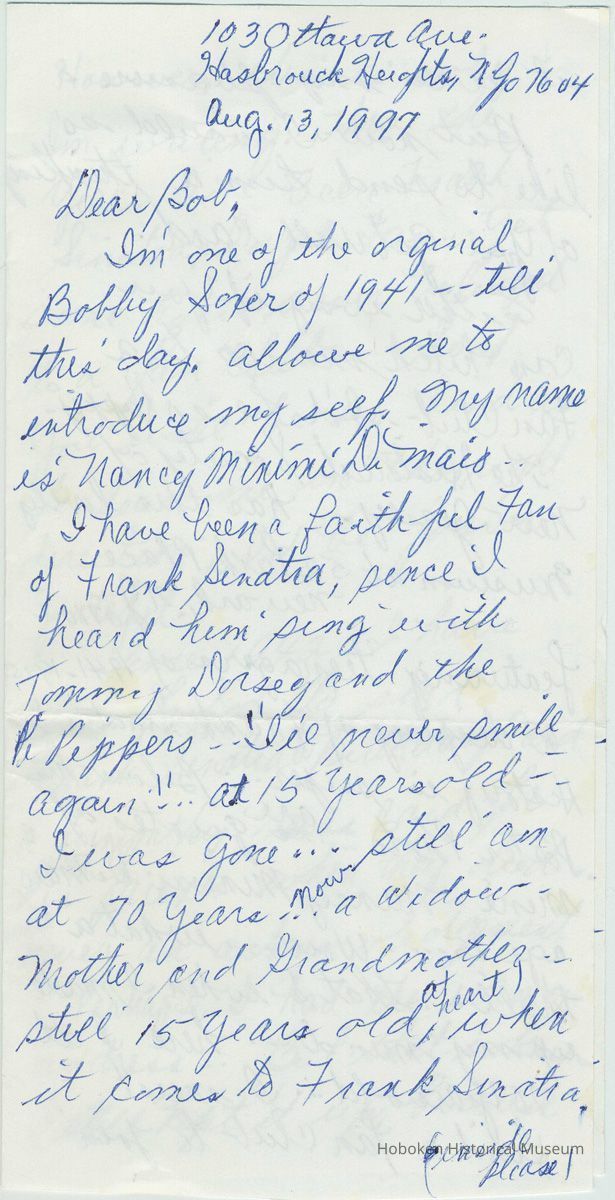 103 Ottawa Ave.
Hasbrouck Heights, NJ 07604
Aug. 13, 1997
Dear Bob,
I'm one of the orginal
Bobby Soxer of 1941 -- till
this day. allowe me to
introduce my self. My name
is Nancy Minimi Di Maio..
I have been a faithful Fan
of Frank Sinatra, since I
heard him sing with
Tommy Dorsey and the
Pi Peppers -- "I'll never smile
again"!.. at 15 Years old --
I was Gone... still am
at 70 Years now... a Widow-
Mother and Grandmother --
still 15 Years old, at heart, when
it comes to Frank Sinatra.
(inside
please)
Hoboken Historical Museum